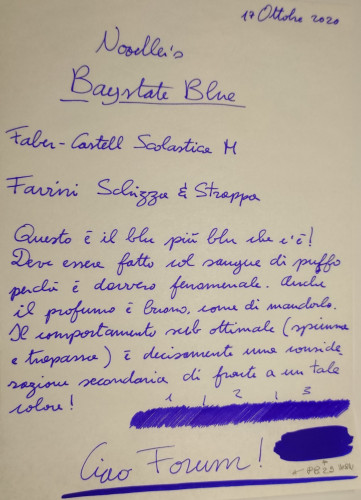 17 Ottobre 2020
Noodler's
Baystate Blue
Faber-Castell Scolastica M
Favini Schizza & Strappa
Questo è il blu più blu che c'è!
Deve essere fatto col sangue di puffo
perché è davvero fenomenale. Anche
il profumo è buono, come di mandorlo.
Il comportamento sub ottimale (spiuma
e trapassa) è decisamente una conside
razione secondaria di fronte a un tale
colore!
1 1 2 1 3
Ciao Forum!